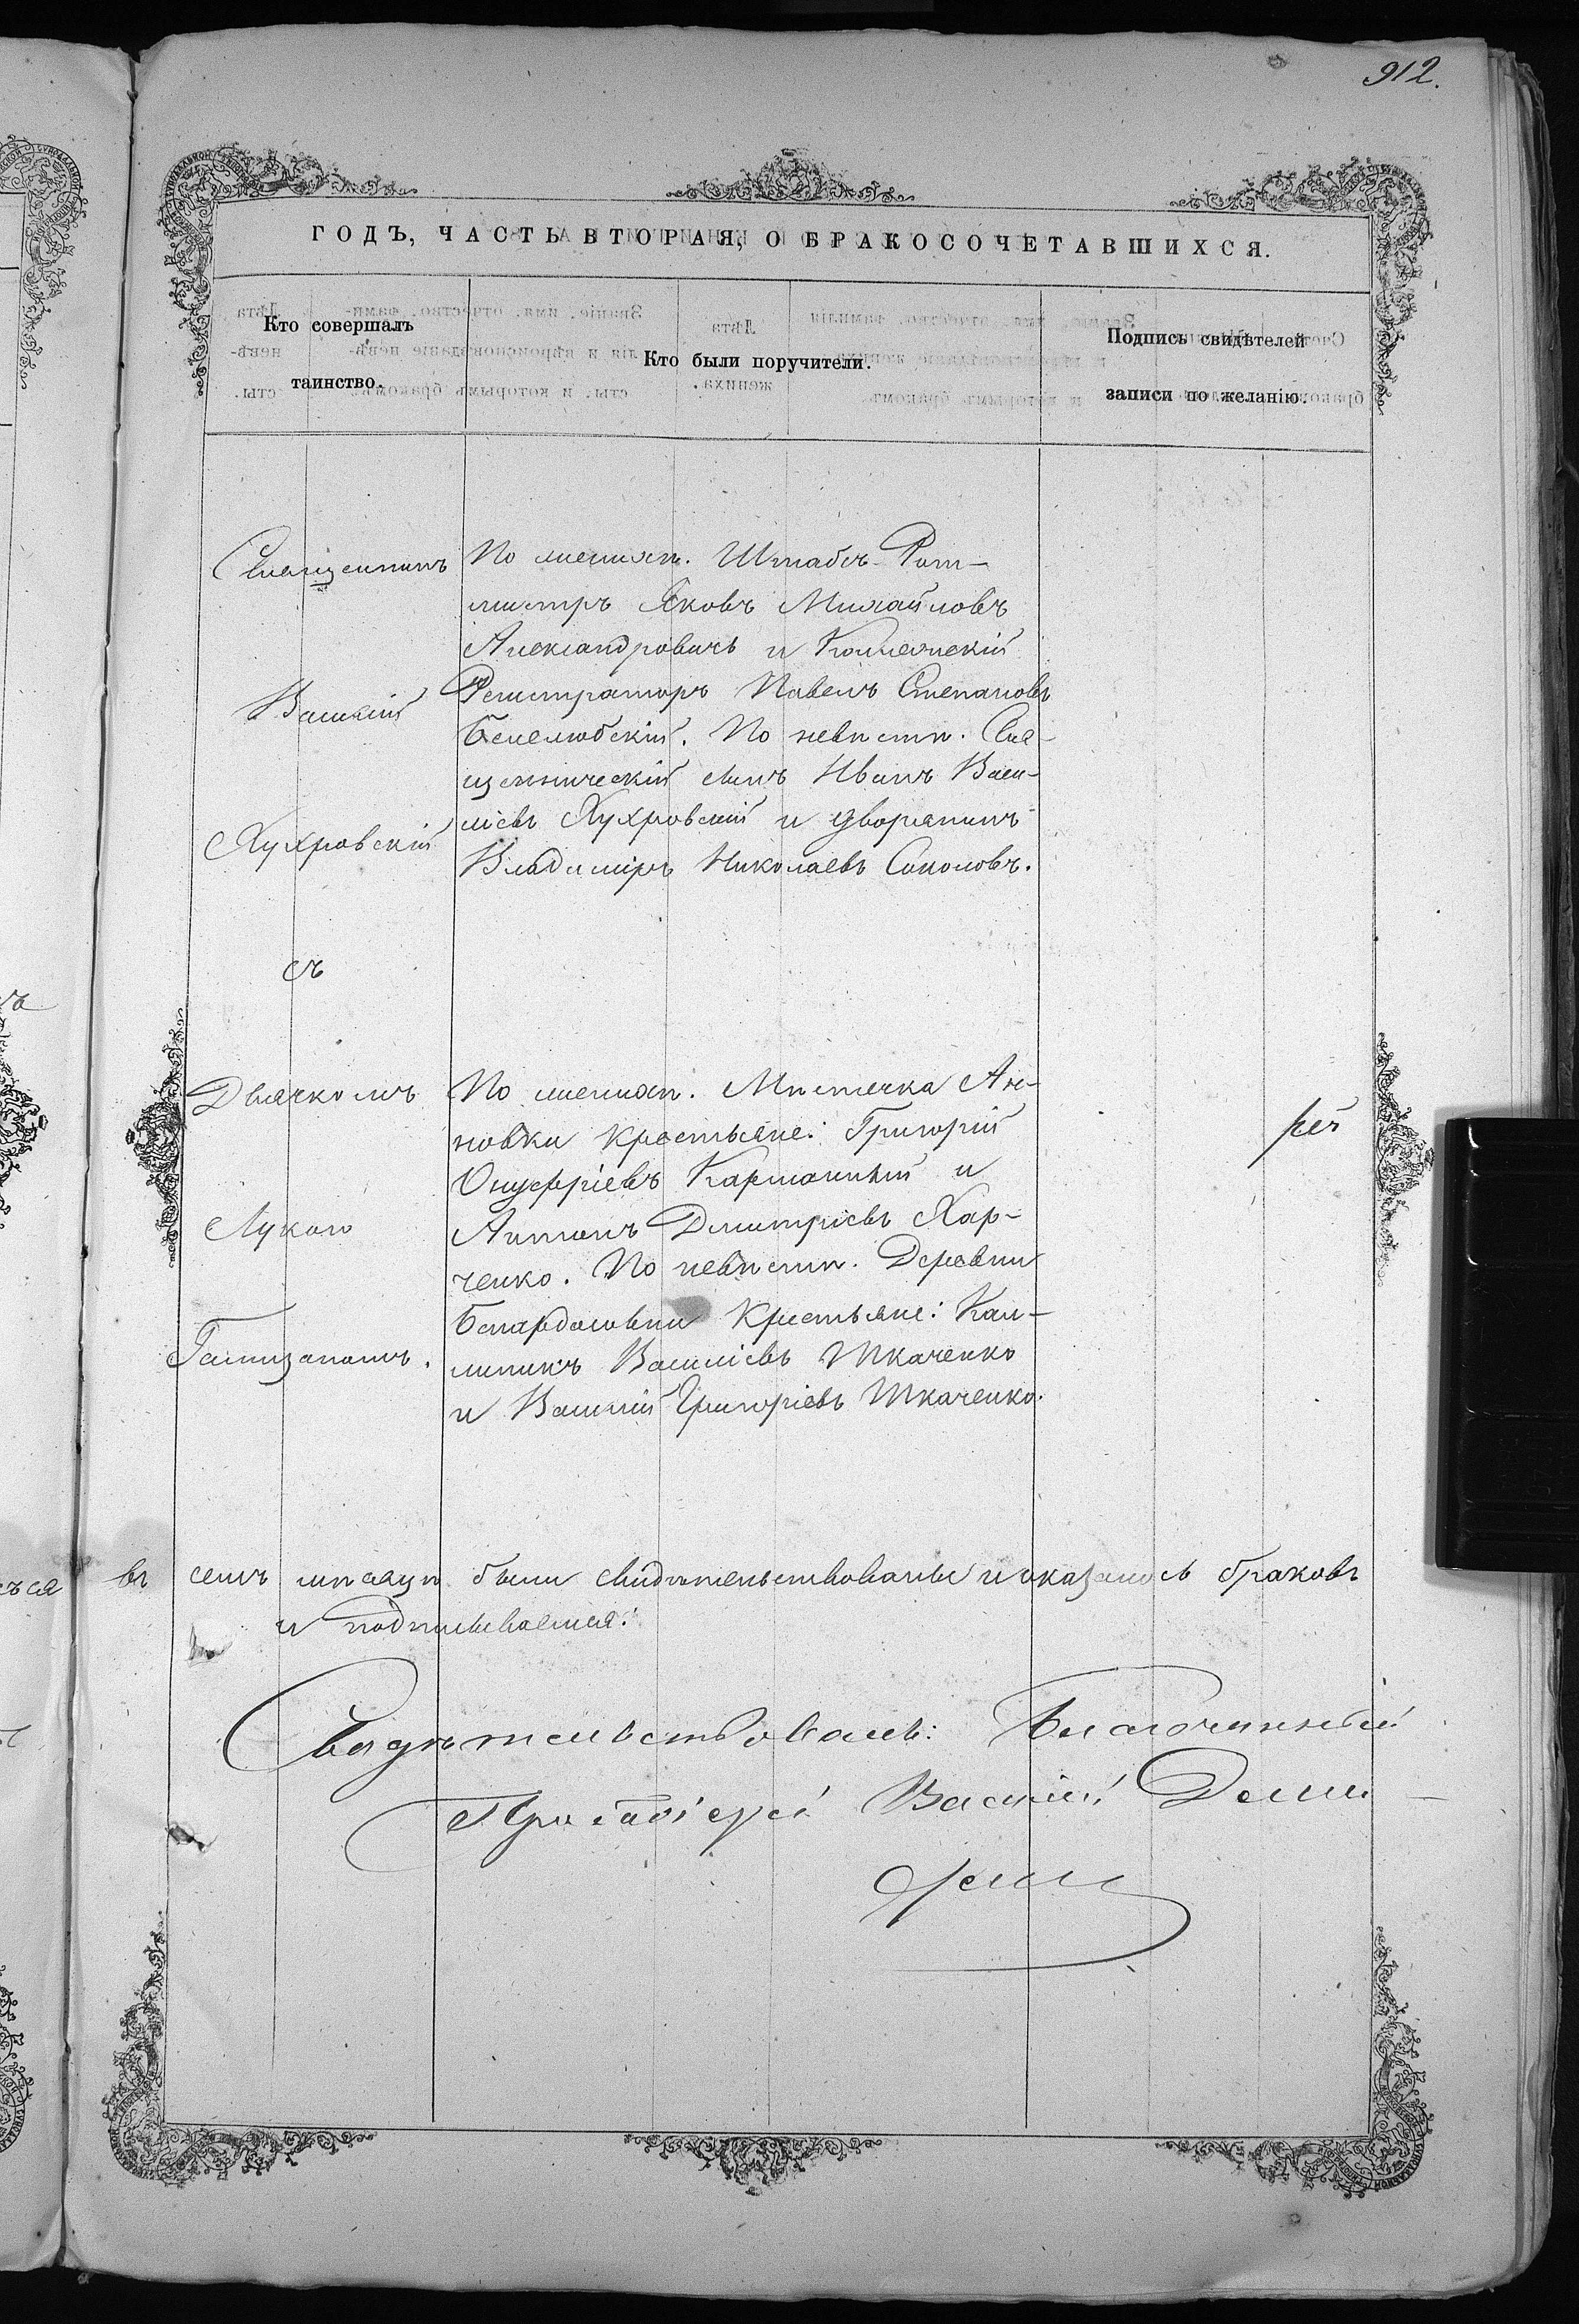 912.
ГОДЪ, ЧАСТЬ ВТОРАЯ, О БРАКОСОЧЕТАВШИХСЯ.
Кто совершалъ
таинство.
Кто были поручители.
Подпись свидѣтелей
записи по желанію.
Священникъ
Василій
Хухровскій
съ
Дьячкомъ
Лукою
По женихѣ. Штабсъ-Рот-
мистръ Яковъ Михайловъ
Александровичъ и Коллежскій
Регистраторъ Павелъ Степановъ
Белелюбскій. По невѣстѣ. Свя-
щенническій сынъ Иванъ Васи-
ліевъ Хухровскій и дворянинъ
Владиміръ Николаевъ Соколовъ.
По женихѣ. Мѣстечка Ан-
новки крестьяне: Григорій
Онуфріевъ и
Антонъ Дмитріевъ Хар-
ченко. По невѣстѣ. Деревни
Крестьяне: Кал-
линикъ Василіевъ Ткаченко
и Василій Григоріевъ Ткаченко.
въ семъ мѣсяцѣ были свидѣтельствованы и оказалось браковъ
и подписывался:
Свидѣтельствовалъ: Благочинный
Протоіерей Василій